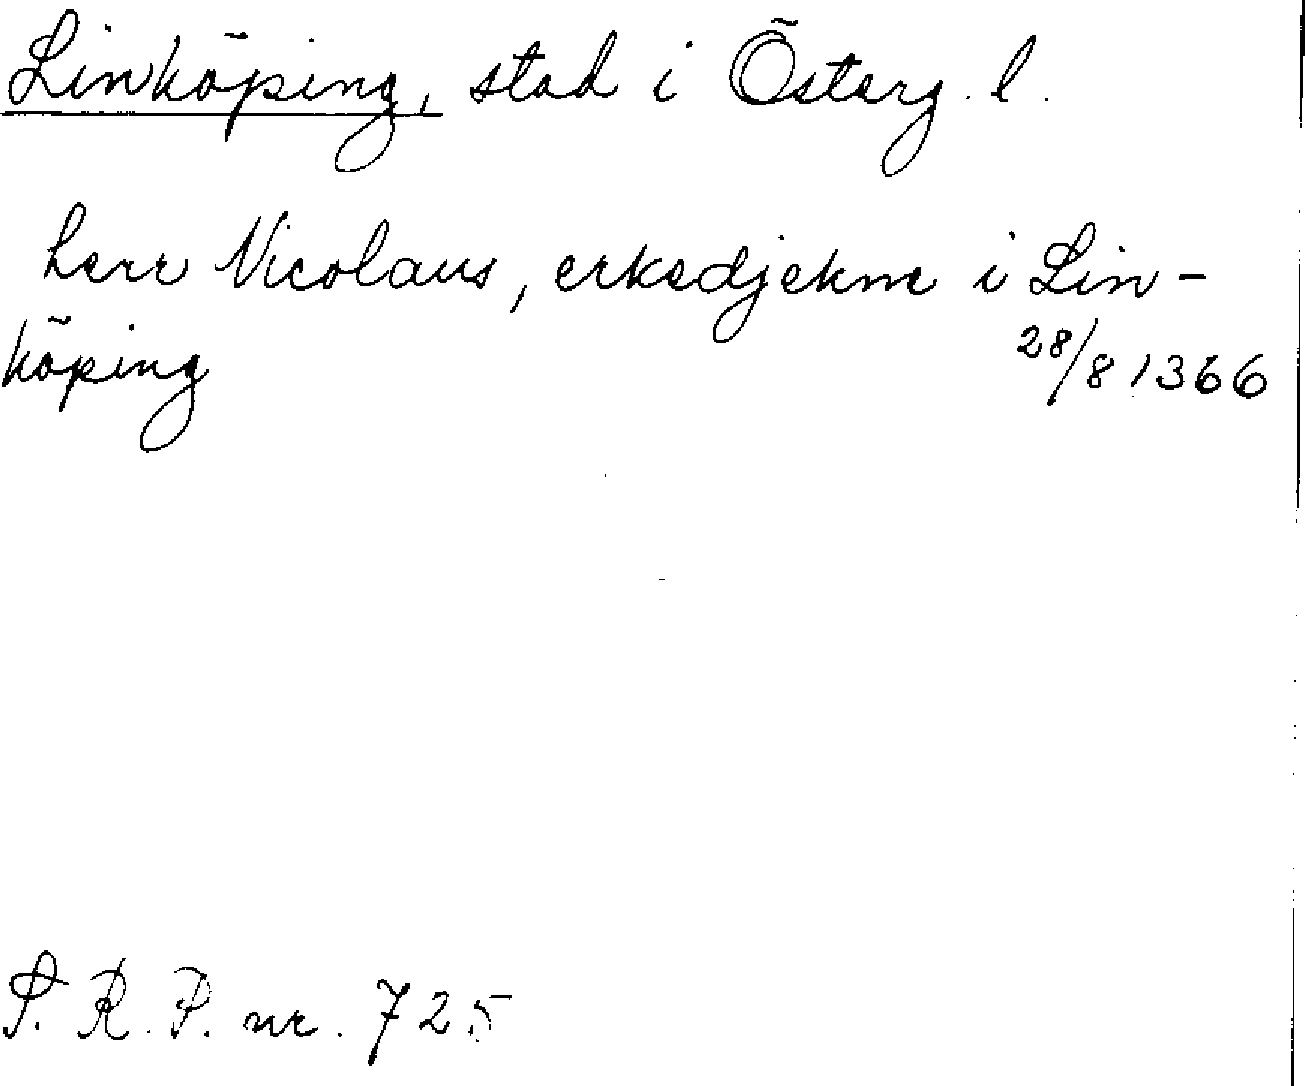 Linköping, stad i Österg. l.
herr Nicolaus, erkedjekne i Lin-
köping 28/8 1366
S. R. P. nr. 725